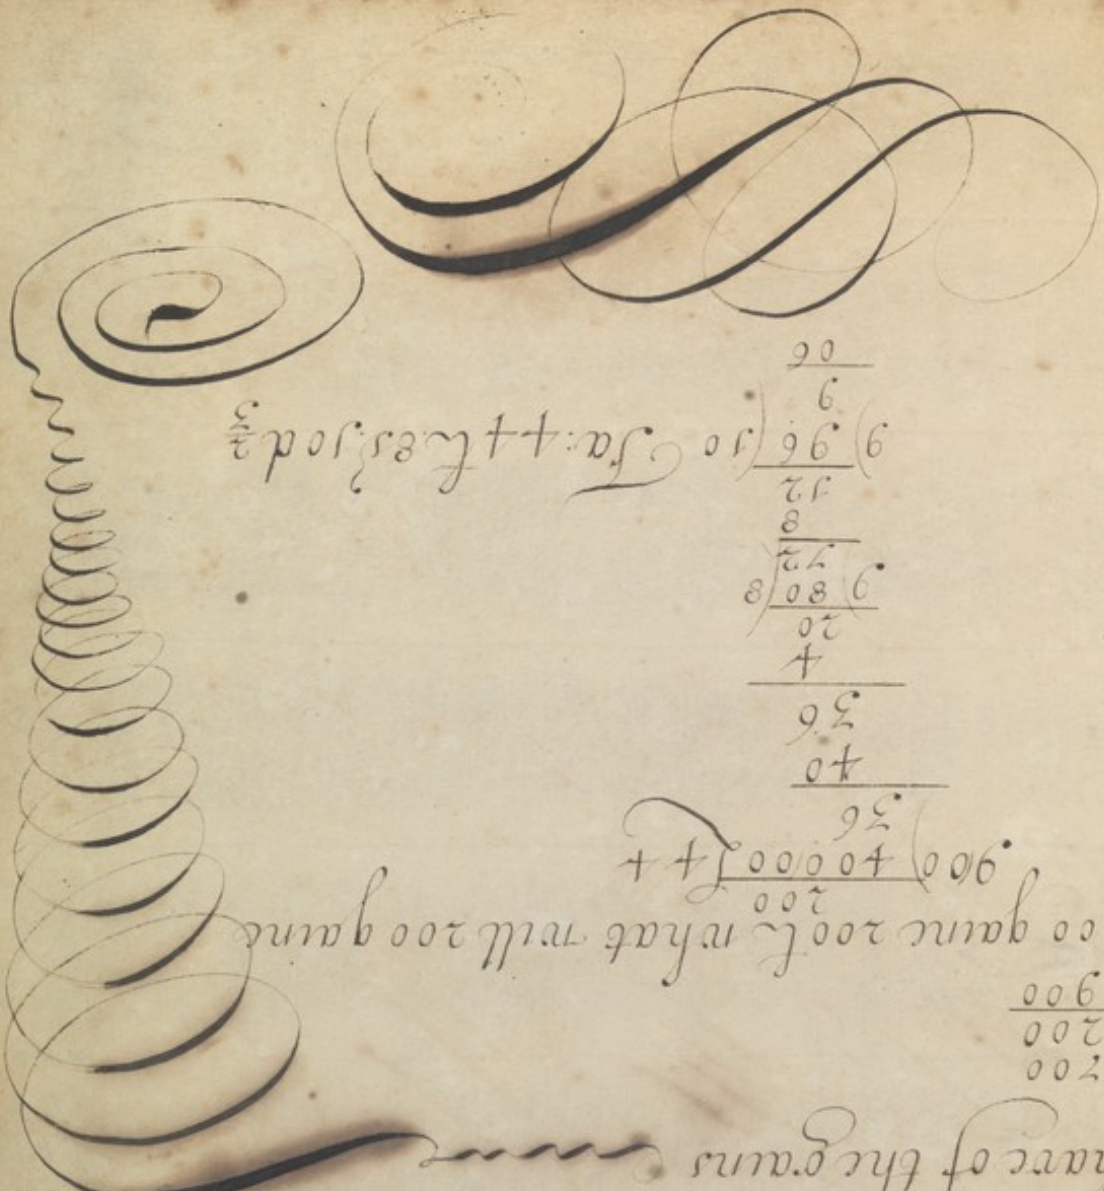 hare of the gains
700
200
900
00 gaine 200£ what will 200 gaine
200
900) 40000 (44
36
40
36
4
20
9) 80 (8
72
8
12
9) 96 (10 Fa: 44£: 8s: 10d 2/3
9
06